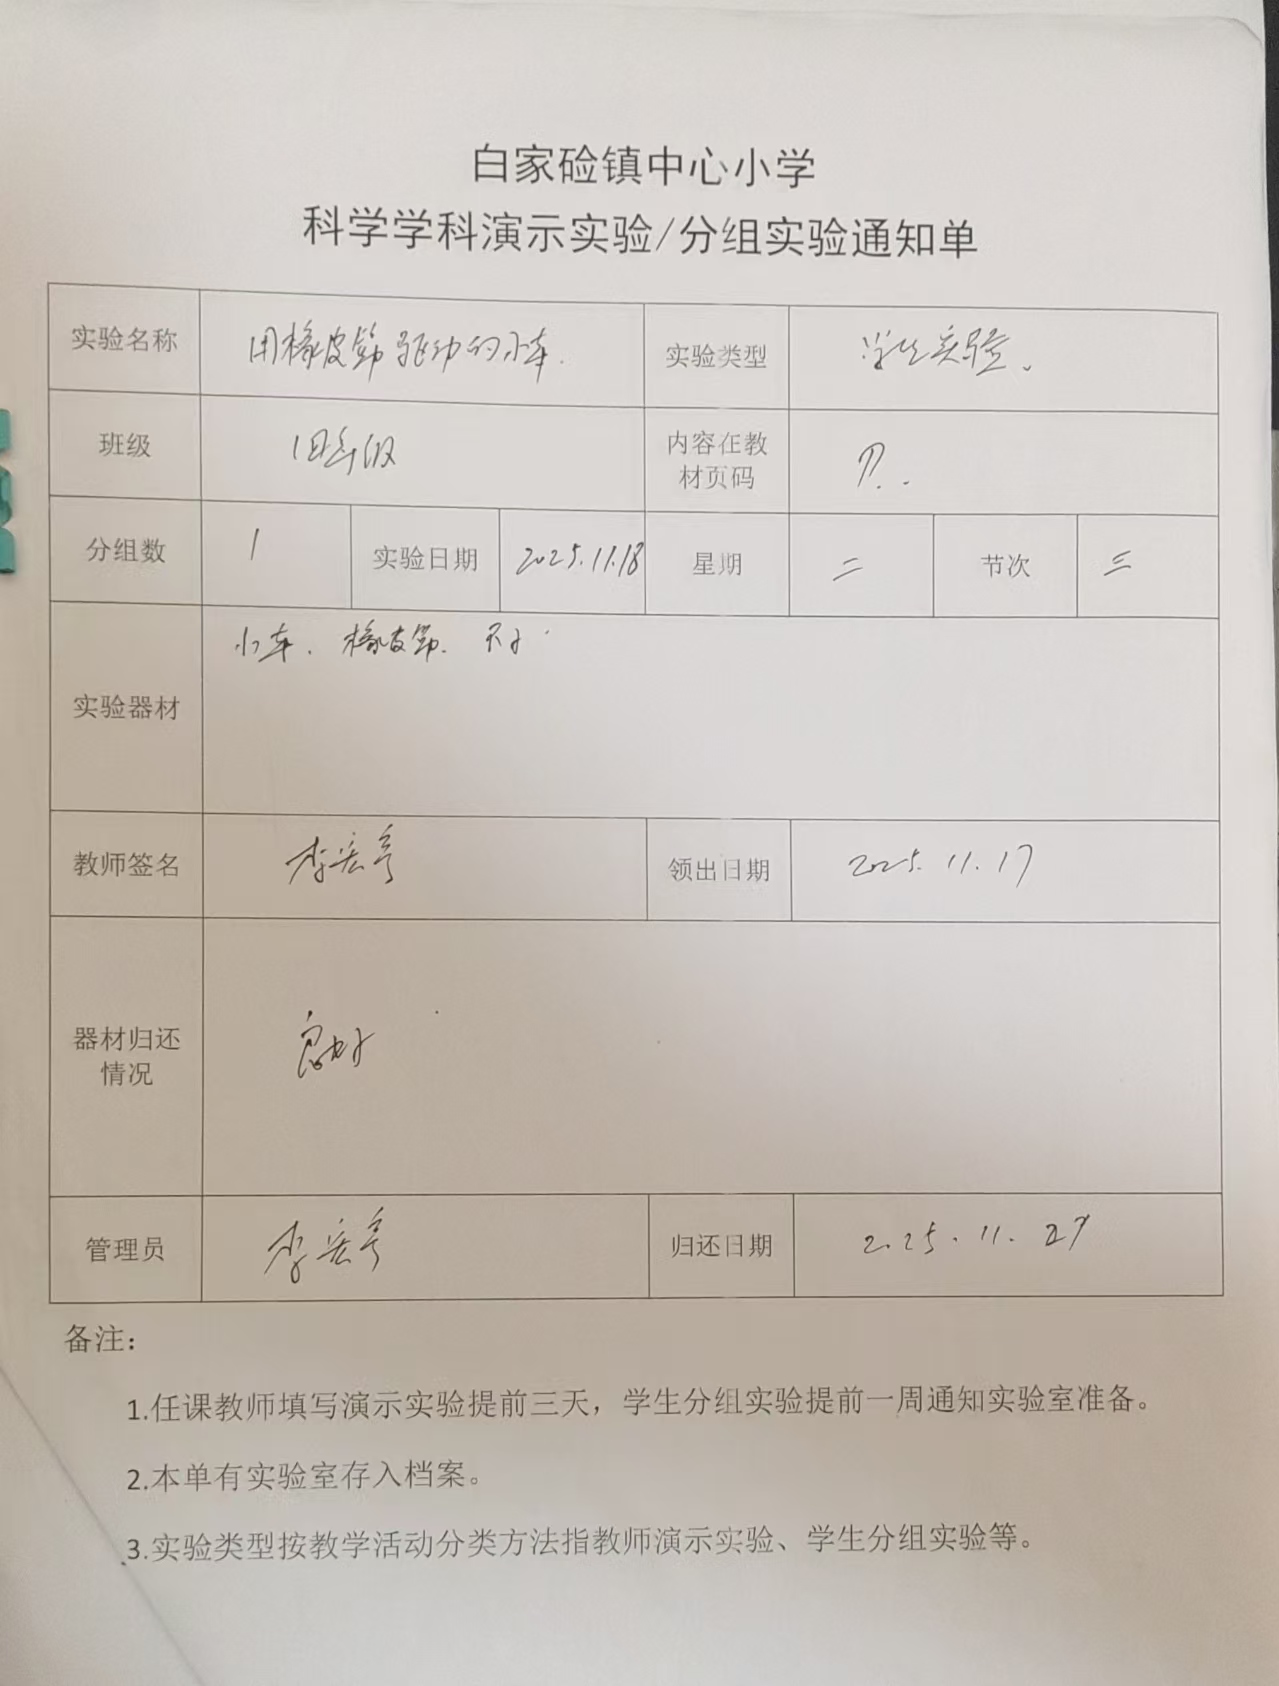 白家硷镇中心小学
科学学科演示实验/分组实验通知单
实验名称 用橡皮筋驱动的小车. 实验类型 学生实验。
班级 四年级 内容在教
材页码
分组数 1 实验日期 2025.11.18 星期 二 节次 三
小车、橡皮筋、尺子
实验器材
教师签名 李宏亮 领出日期 2025.11.17
器材归还
情况 良好
管理员 李宏亮 归还日期 2025.11.27
备注：
1.任课教师填写演示实验提前三天，学生分组实验提前一周通知实验室准备。
2.本单有实验室存入档案。
3.实验类型按教学活动分类方法指教师演示实验、学生分组实验等。